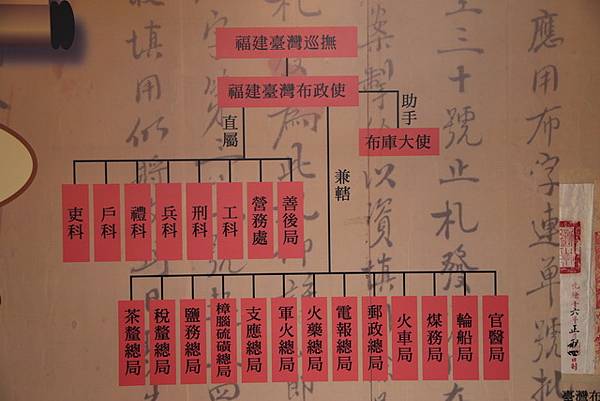 福建臺灣巡撫
福建臺灣布政使
助手
布庫大使
直屬
兼轄
吏科
戶科
禮科
兵科
刑科
工科
營務處
善後局
茶釐總局
稅釐總局
鹽務總局
樟腦硫磺總局
支應總局
軍火總局
火藥總局
電報總局
郵政總局
火車局
煤務局
輪船局
官醫局
應用布字連單號批
至三十號止札發
以資填
填用仍將
臺灣布